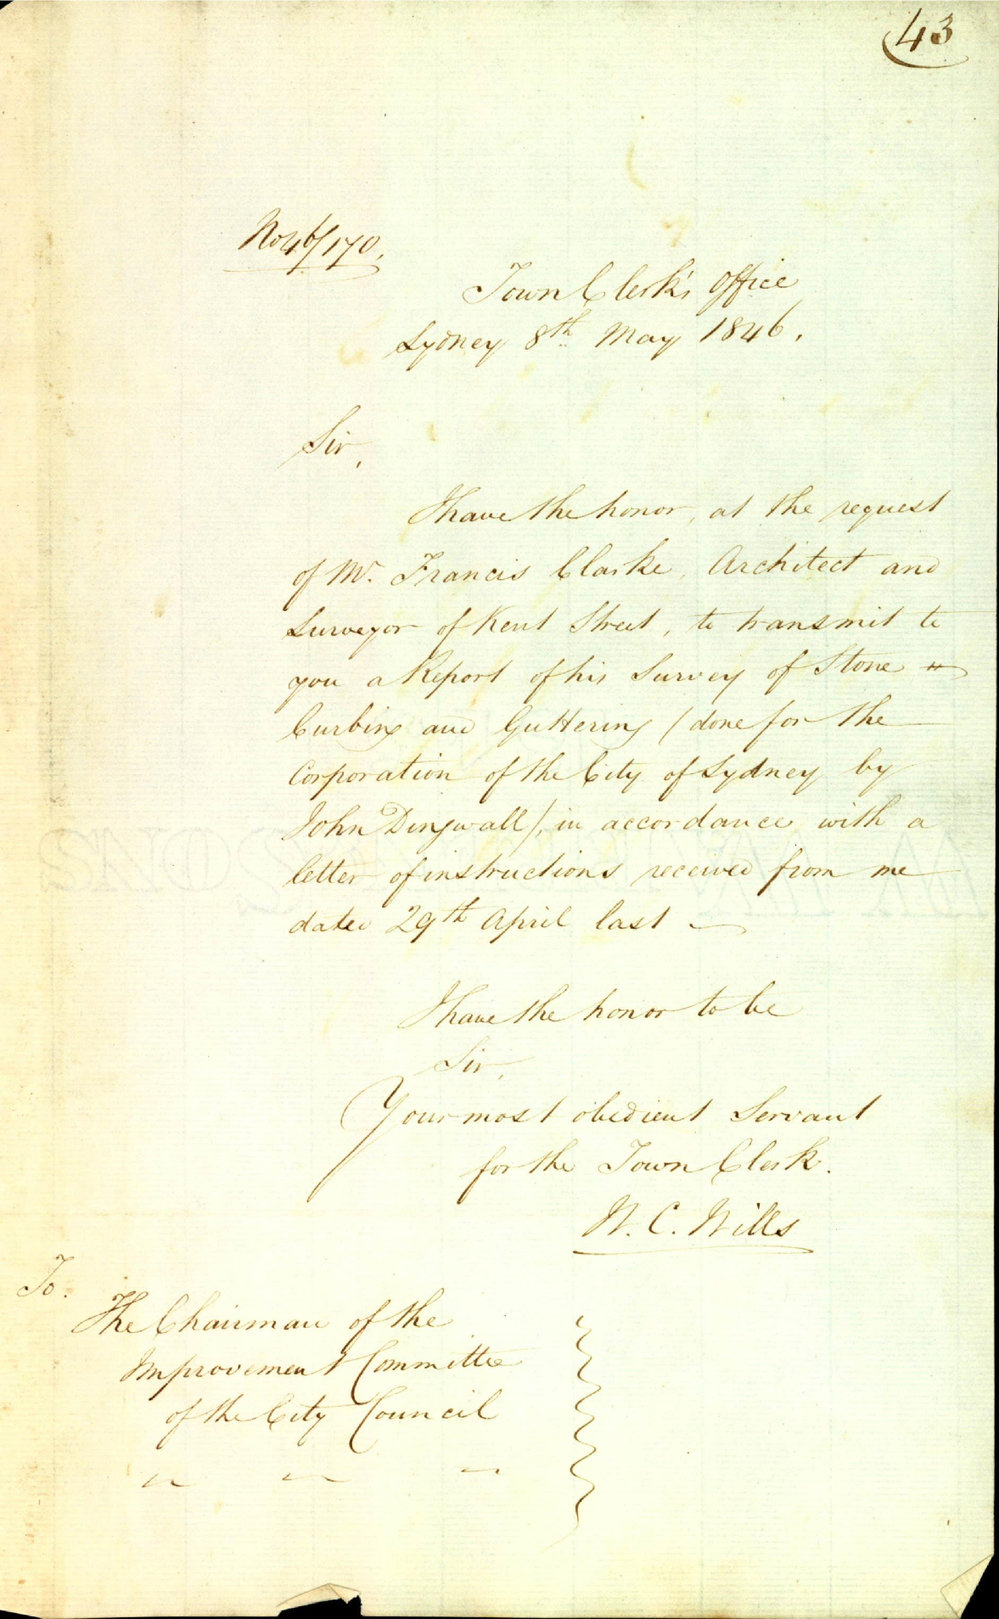 43
No 46/170.
Town Clerk's Office
Sydney 8th May 1846.
Sir,
I have the honor, at the request
of Mr. Francis Clarke, Architect and
Surveyor of Kent Street, to transmit to
you a Report of his Survey of Stone
Curbing and Guttering (done for the
Corporation of the City of Sydney by
John Dingwall), in accordance with a
letter of instructions received from me
dated 29th April last —
I have the honor to be
Sir,
Your most obedient Servant
for the Town Clerk.
W. C. Wills
To.
The Chairman of the
Improvement Committee
of the City Council